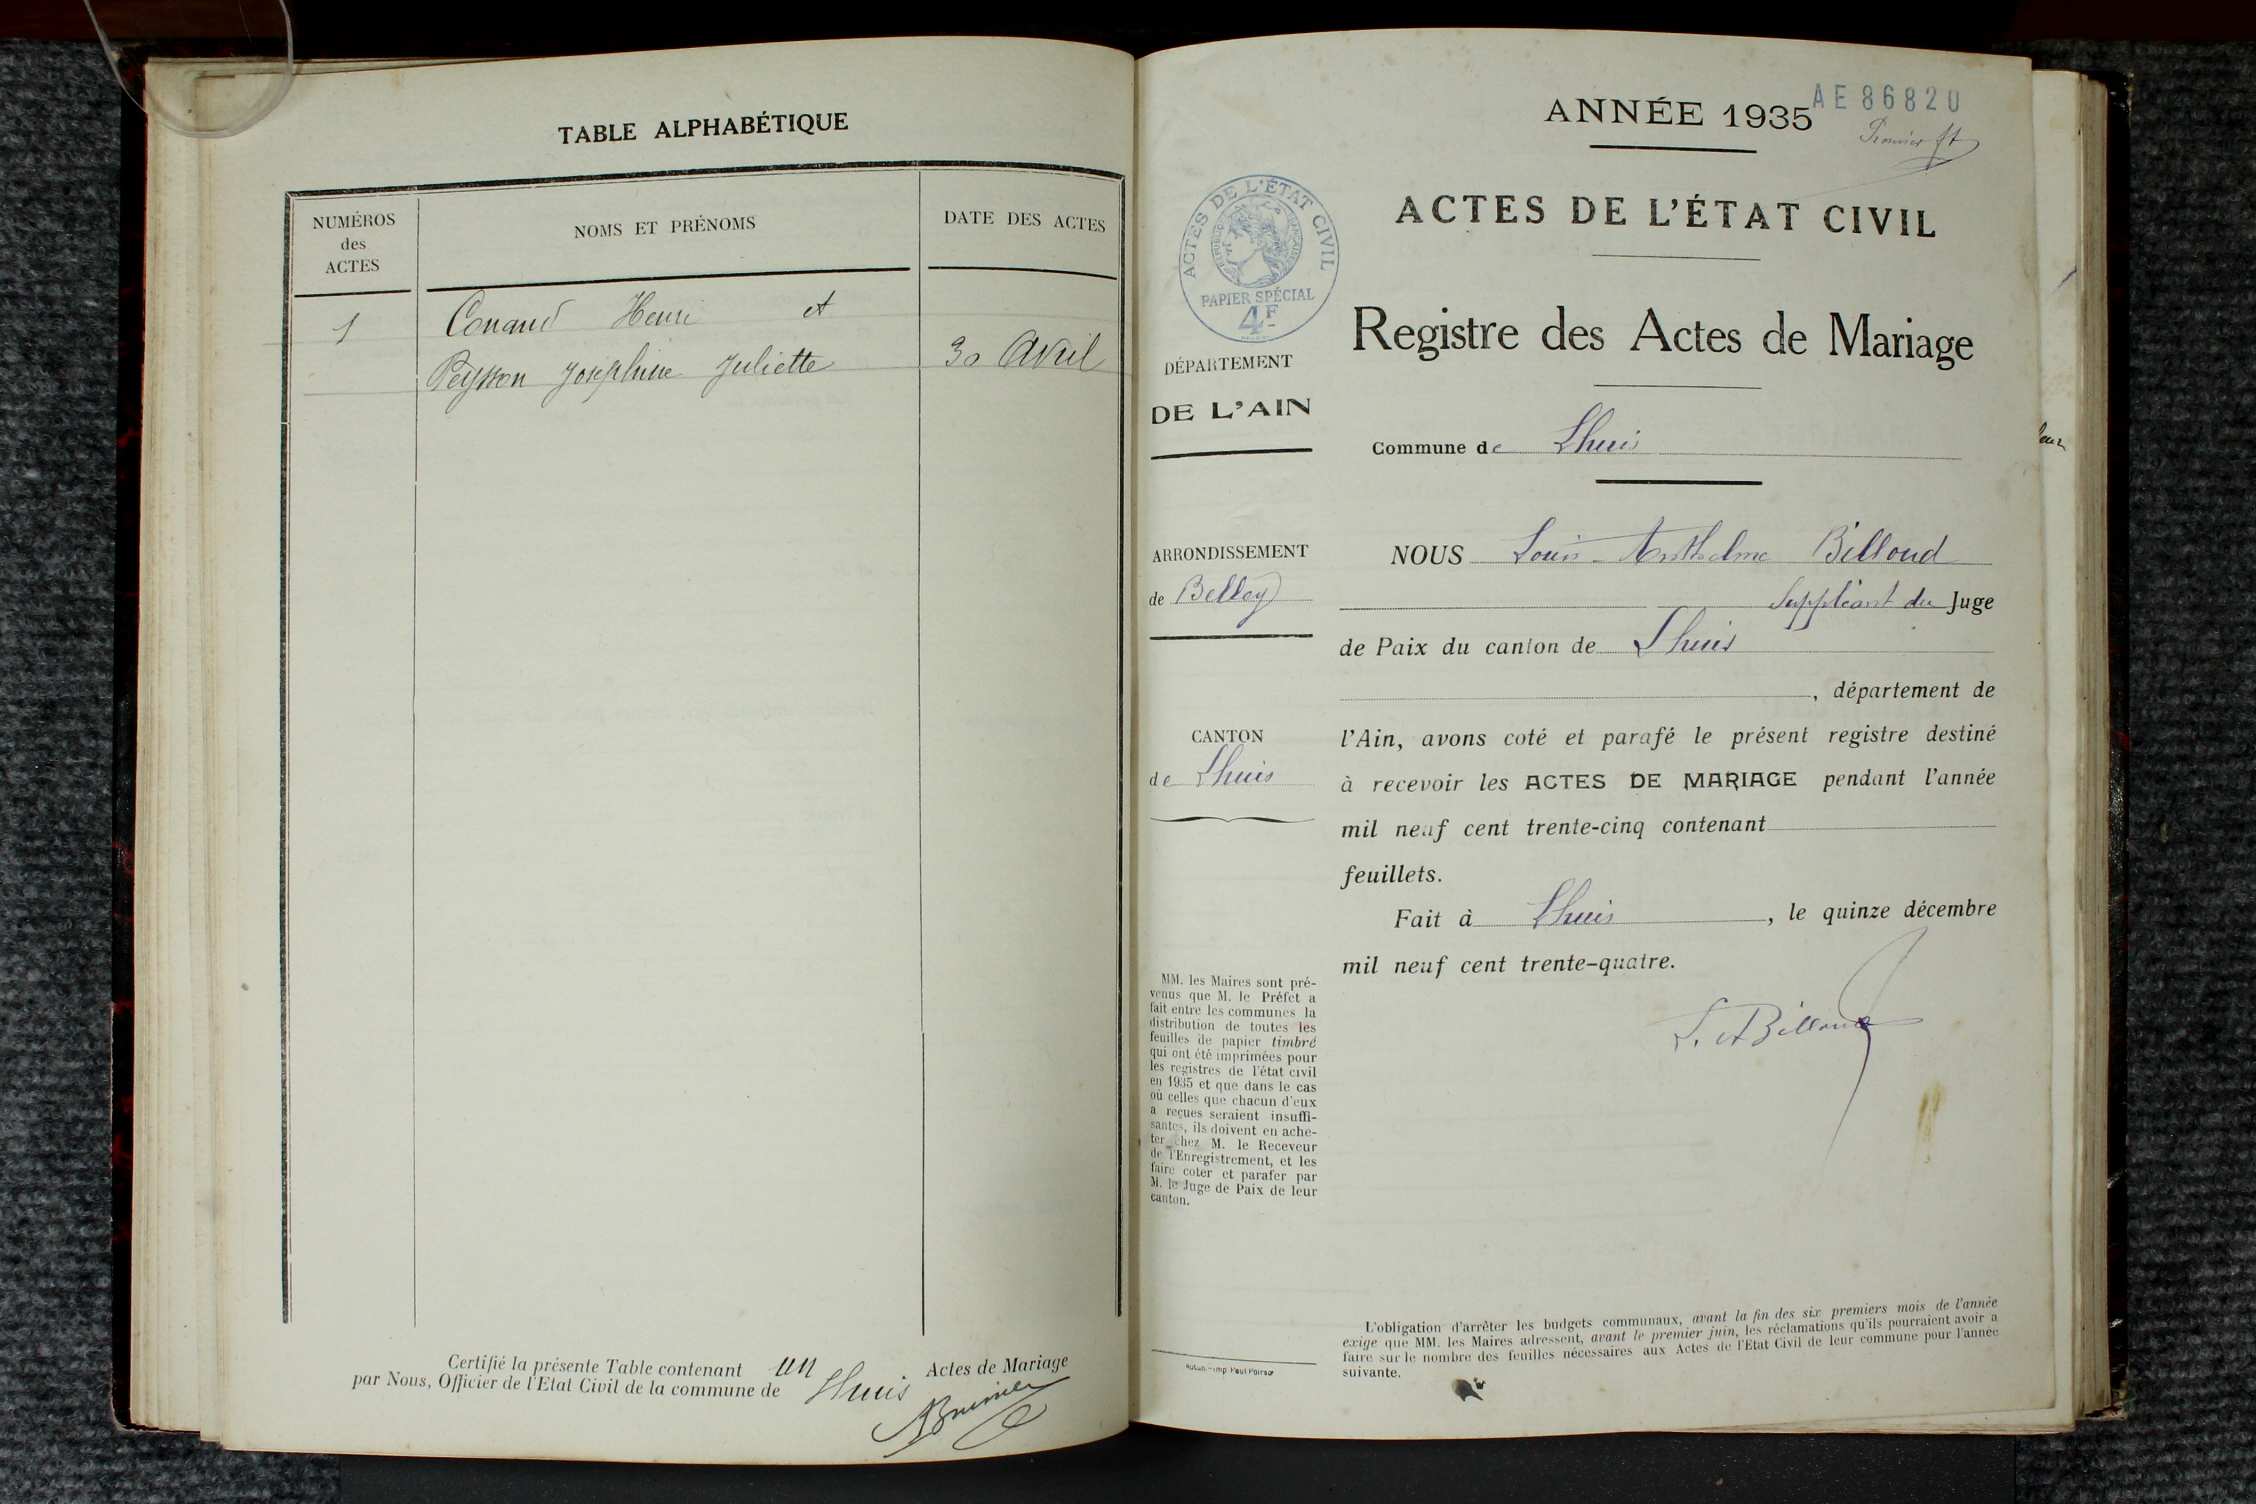 TABLE ALPHABÉTIQUE
NUMÉROS
des
ACTES
NOMS ET PRÉNOMS
DATE DES ACTES
1
Conand Henri et
Peysson Joséphine Juliette
30 Avril
Certifié la présente Table contenant un Actes de Mariage
par Nous, Officier de l'Etat Civil de la commune de Lhuis
AE 86820
ANNÉE 1935
Premier ft
ACTES DE L'ÉTAT CIVIL
RÉPUBLIQUE FRANÇAISE
PAPIER SPÉCIAL
4F
DÉPARTEMENT
DE L'AIN
ARRONDISSEMENT
de Belley
CANTON
de Lhuis
MM. les Maires sont pré-
venus que M. le Préfet a
fait entre les communes la
distribution de toutes les
feuilles de papier timbré
qui ont été imprimées pour
les registres de l'état civil
en 1935 et que dans le cas
où celles que chacun d'eux
a reçues seraient insuffi-
santes, ils doivent en ache-
ter chez M. le Receveur
de l'Enregistrement, et les
faire coter et parafer par
M. le Juge de Paix de leur
canton.
ACTES DE L'ÉTAT CIVIL
Registre des Actes de Mariage
Commune de Lhuis
NOUS Louis-Anthelme Billoud
Suppléant du Juge
de Paix du canton de Lhuis
, département de
l'Ain, avons coté et parafé le présent registre destiné
à recevoir les ACTES DE MARIAGE pendant l'année
mil neuf cent trente-cinq contenant
feuillets.
Fait à Lhuis, le quinze décembre
mil neuf cent trente-quatre.
L. A Billoud
L'obligation d'arrêter les budgets communaux, avant la fin des six premiers mois de l'année
exige que MM. les Maires adressent, avant le premier juin, les réclamations qu'ils pourraient avoir a
faire sur le nombre des feuilles nécessaires aux Actes de l'Etat Civil de leur commune pour l'année
suivante.